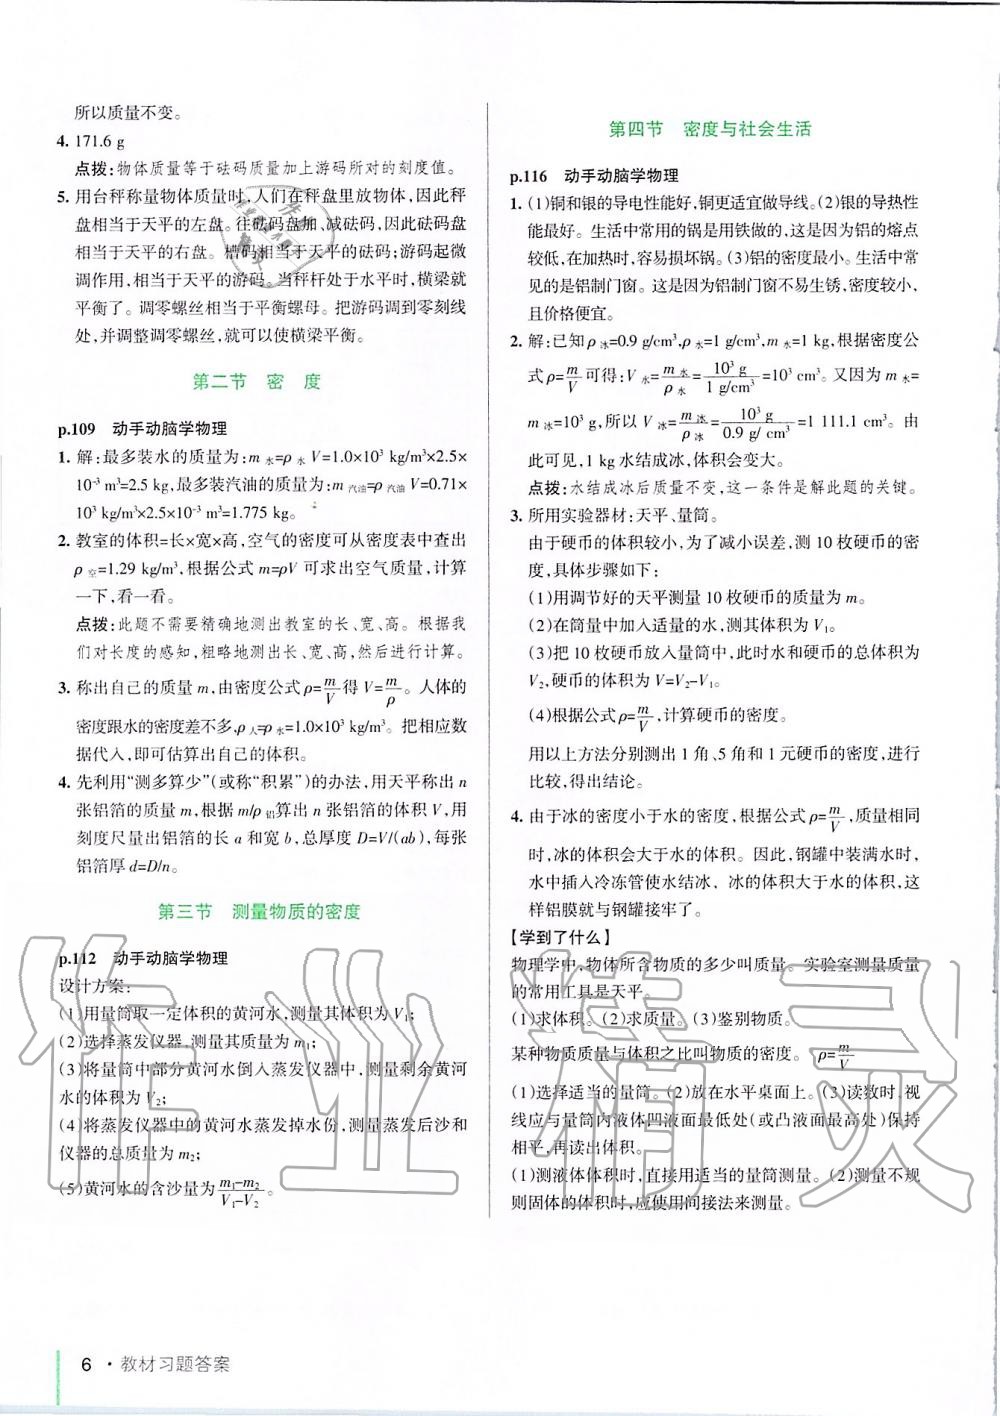 所以质量不变。
4. 171.6 g
点拨:物体质量等于砝码质量加上游码所对的刻度值。
5. 用台秤称量物体质量时,人们在秤盘里放物体,因此秤
盘相当于天平的左盘。往砝码盘加、减砝码,因此砝码盘
相当于天平的右盘。槽码相当于天平的砝码;游码起微
调作用,相当于天平的游码。当秤杆处于水平时,横梁就
平衡了。调零螺丝相当于平衡螺母。把游码调到零刻线
处,并调整调零螺丝,就可以使横梁平衡。
第二节 密 度
p.109 动手动脑学物理
1. 解:最多装水的质量为:m水=ρ水 V=1.0×10³ kg/m³×2.5×
10⁻³ m³=2.5 kg,最多装汽油的质量为:m汽油=ρ汽油 V=0.71×
10³ kg/m³×2.5×10⁻³ m³=1.775 kg。
2. 教室的体积=长×宽×高,空气的密度可从密度表中查出
ρ空=1.29 kg/m³,根据公式 m=ρV 可求出空气质量,计算
一下,看一看。
点拨:此题不需要精确地测出教室的长、宽、高。根据我
们对长度的感知,粗略地测出长、宽、高,然后进行计算。
3. 称出自己的质量 m,由密度公式 ρ=m/V 得 V=m/ρ。人体的
密度跟水的密度差不多,ρ人=ρ水=1.0×10³ kg/m³。把相应数
据代入,即可估算出自己的体积。
4. 先利用“测多算少”(或称“积累”)的办法,用天平称出 n
张铝箔的质量 m,根据 m/ρ铝算出 n 张铝箔的体积 V,用
刻度尺量出铝箔的长 a 和宽 b,总厚度 D=V/(ab),每张
铝箔厚 d=D/n。
第三节 测量物质的密度
p.112 动手动脑学物理
设计方案:
(1)用量筒取一定体积的黄河水,测量其体积为 V₁;
(2)选择蒸发仪器,测量其质量为 m₁;
(3)将量筒中部分黄河水倒入蒸发仪器中,测量剩余黄河
水的体积为 V₂;
(4)将蒸发仪器中的黄河水蒸发掉水份,测量蒸发后沙和
仪器的总质量为 m₂;
(5)黄河水的含沙量为(m₁-m₂)/(V₁-V₂)。
第四节 密度与社会生活
p.116 动手动脑学物理
1. (1)铜和银的导电性能好,铜更适宜做导线。(2)银的导热性
能最好。生活中常用的锅是用铁做的,这是因为铝的熔点
较低,在加热时,容易损坏锅。(3)铝的密度最小。生活中常
见的是铝制门窗。这是因为铝制门窗不易生锈,密度较小,
且价格便宜。
2. 解:已知ρ冰=0.9 g/cm³,ρ水=1 g/cm³,m水=1 kg,根据密度公
式 ρ=m/V 可得:V水=m水/ρ水=10³ g/1 g/cm³=10³ cm³。又因为 m水=
m冰=10³ g,所以 V冰=m冰/ρ冰=10³ g/0.9 g/ cm³=1 111.1 cm³。由
此可见,1 kg水结成冰,体积会变大。
点拨:水结成冰后质量不变,这一条件是解此题的关键。
3. 所用实验器材:天平、量筒。
由于硬币的体积较小,为了减小误差,测 10 枚硬币的密
度,具体步骤如下:
(1)用调节好的天平测量 10 枚硬币的质量为 m。
(2)在筒量中加入适量的水,测其体积为 V₁。
(3)把 10 枚硬币放入量筒中,此时水和硬币的总体积为
V₂,硬币的体积为 V=V₂-V₁。
(4)根据公式ρ=m/V,计算硬币的密度。
用以上方法分别测出 1 角、5 角和 1 元硬币的密度,进行
比较,得出结论。
4. 由于冰的密度小于水的密度,根据公式 ρ=m/V,质量相同
时,冰的体积会大于水的体积。因此,钢罐中装满水时,
水中插入冷冻管使水结冰, 冰的体积大于水的体积,这
样铝膜就与钢罐接牢了。
【学到了什么】
物理学中,物体所含物质的多少叫质量。实验室测量质量
的常用工具是天平。
(1)求体积。(2)求质量。(3)鉴别物质。
某种物质质量与体积之比叫物质的密度。ρ=m/V
(1)选择适当的量筒。(2)放在水平桌面上。(3)读数时,视
线应与量筒内液体凹液面最低处(或凸液面最高处)保持
相平,再读出体积。
(1)测液体体积时,直接用适当的量筒测量。(2)测量不规
则固体的体积时,应使用间接法来测量。
作业精灵
6 · 教材习题答案